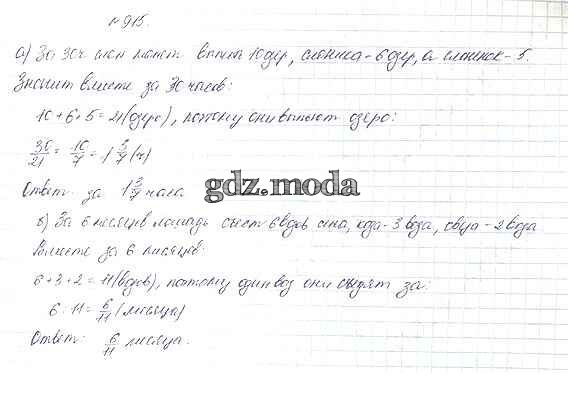 № 915.
а) За 30ч слон может выпить 10 озер, слониха - 6 озер, а слоненок - 5.
Значит вместе за 30 часов:
10 + 6 + 5 = 21 (озеро), поэтому они выпьют озеро:
30/21 = 10/7 = 1 3/7 (ч)
Ответ: за 1 3/7 часа
gdz.moda
б) За 6 месяцев лошадь съест 6 возов сена, коза - 3 воза, овца - 2 воза
Вместе за 6 месяцев
6 + 3 + 2 = 11 (возов), поэтому один воз они съедят за:
6 : 11 = 6/11 (месяца)
Ответ: 6/11 месяца.